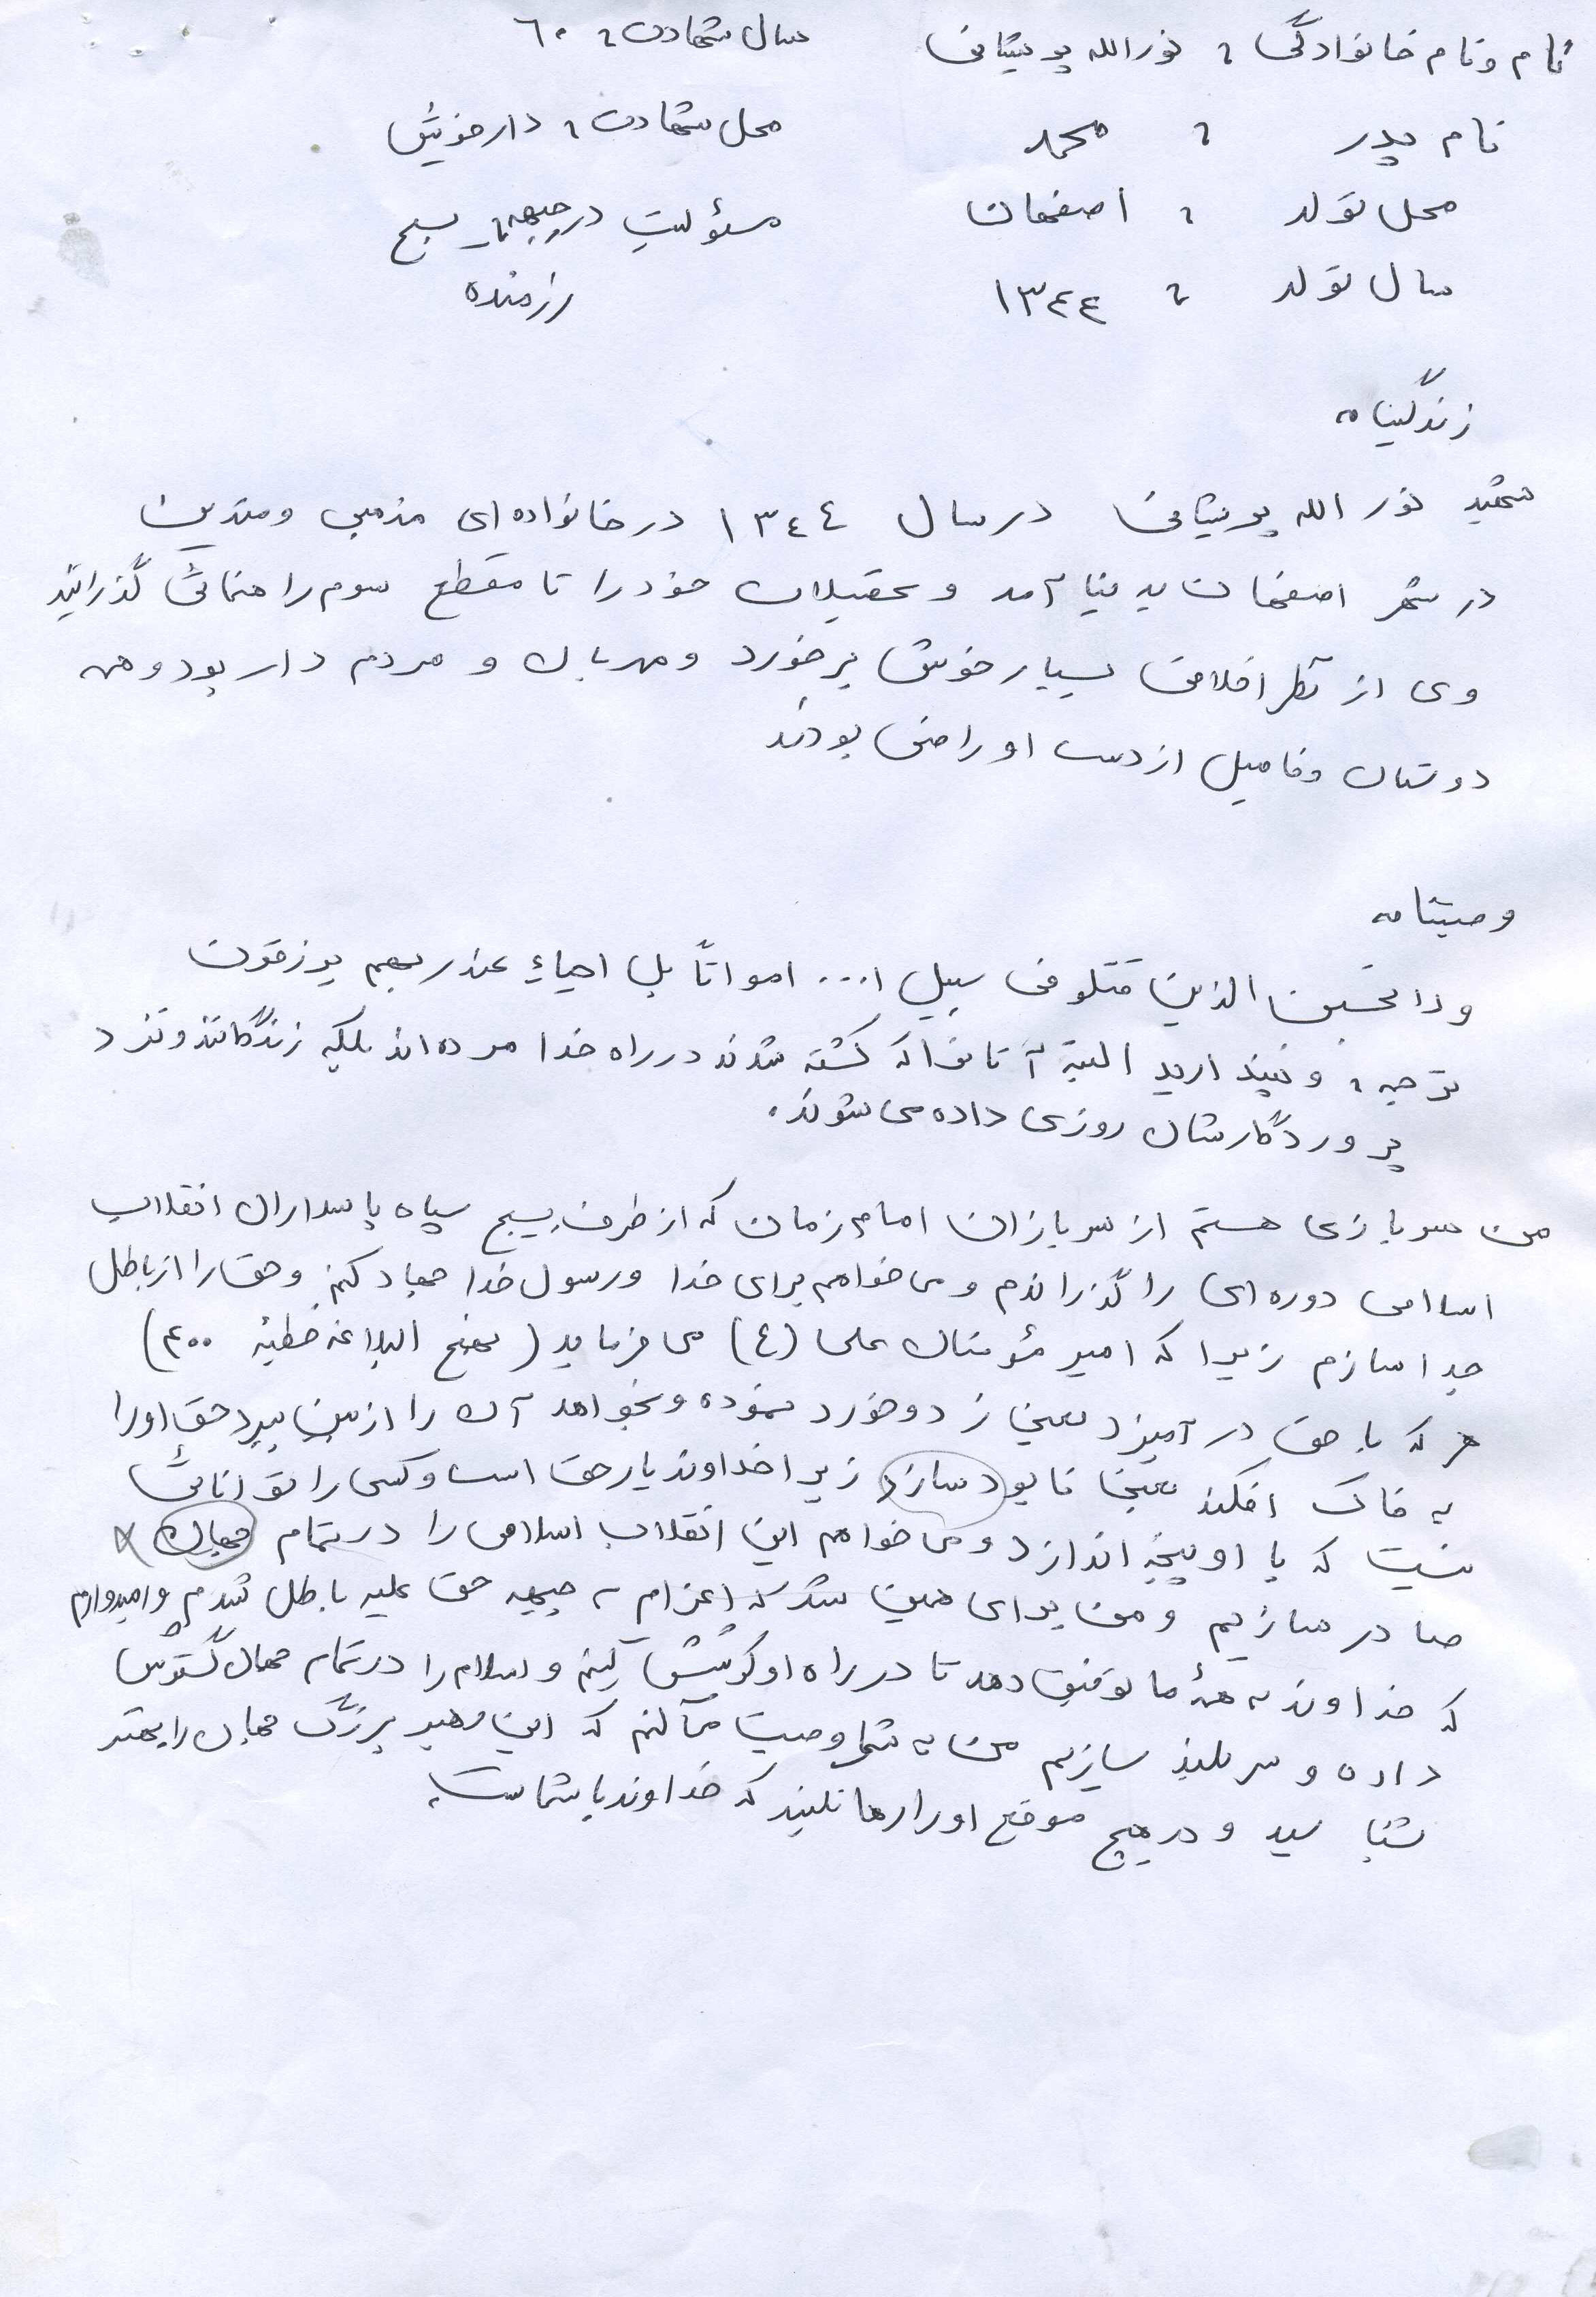 نام و نام خانوادگی : نورالله پریشانی
سال شهادت : ٦٠
نام پدر : محمد
محل شهادت : دارخوین
محل تولد : اصفهان
مسئولیت در جبهه : بسیج
سال تولد : ١٣٤٤
رزمنده
زندگینامه
شهید نورالله پریشانی در سال ١٣٤٤ در خانواده ای مذهبی و متدین
در شهر اصفهان بدنیا آمد و تحصیلات خود را تا مقطع سوم راهنمائی گذرانید
وی از نظر اخلاقی بسیار خوش برخورد و مهربان و مردم دار بود و همه
دوستان و فامیل از دست او راضی بودند
وصیتنامه
ولا تحسبن الذین قتلو فی سبیل ا... امواتاً بل احیاءٍ عند ربهم یرزقون
ترجمه : و نپندارید البته آنانرا که کشته شدند در راه خدا مرده اند بلکه زندگانند و نزد
پروردگارشان روزی داده می شوند.
من سربازی هستم از سربازان امام زمان که از طرف بسیج سپاه پاسداران انقلاب
اسلامی دوره ای را گذراندم و می خواهم برای خدا و رسول خدا جهاد کنم و حق را از باطل
جدا سازم زیرا که امیر مؤمنان علی (ع) می فرماید ( نهج البلاغه خطبه ٤٠٠)
هر که با حق در آمیزد یعنی زد و خورد نموده و بخواهد آن را از بین ببرد حق او را
به خاک افکند یعنی نابود سازد زیرا خداوند یار حق است و کسی را توانائی
نیست که با او پنجه اندازد و می خواهم این انقلاب اسلامی را در تمام جهان
صادر سازیم و من برای همین شد که اعزام به جبهه حق علیه باطل شدم و امیدوارم
که خداوند به همهٔ ما توفیق دهد تا در راه او کوشش کنیم و اسلام را در تمام جهان گسترش
داده و سر بلند سازیم من به شما وصیت می کنم که این رهبر بزرگ جهان را بهتر
بشناسید و در هیچ موقع او را رها نکنید که خداوند با شماست.